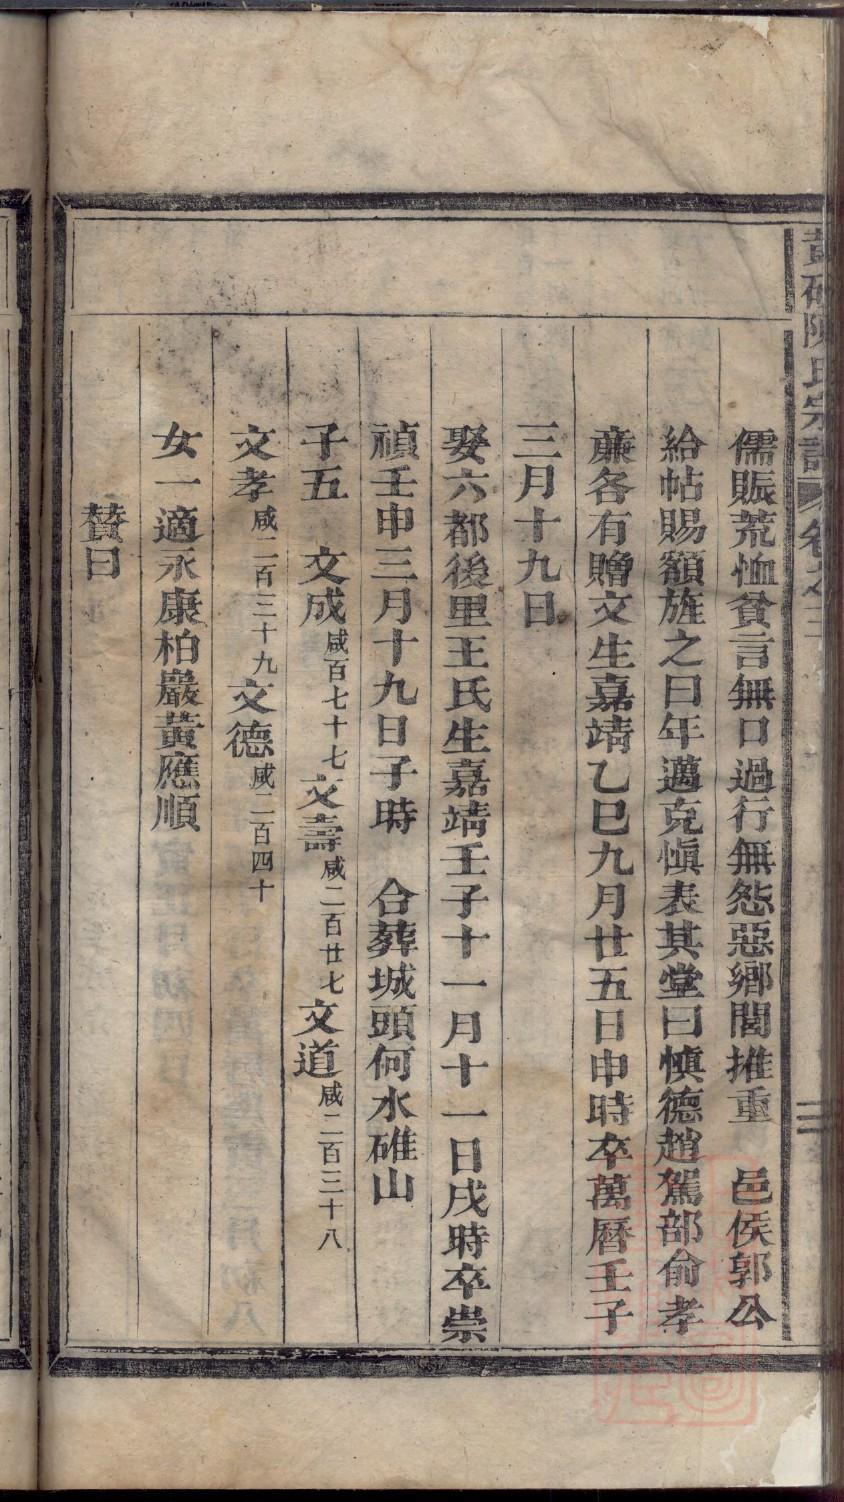 黃 陳氏宗譜 卷之三
儒賑荒恤貧言無口過行無怨惡鄉閭推重 邑侯郭公
給帖賜額旌之曰年邁克愼表其堂曰愼德趙駕部俞孝
亷各有贈文生嘉靖乙巳九月廿五日申時卒萬曆壬子
三月十九日
娶六都後里王氏生嘉靖壬子十一月十一日戌時卒崇
禎壬申三月十九日子時 合葬城頭何水碓山
子五 文成咸百七十七文壽咸二百廿七文道咸二百三十八
文孝咸二百三十九文德咸二百四十
女一適永康柏巖黃應順
贊曰